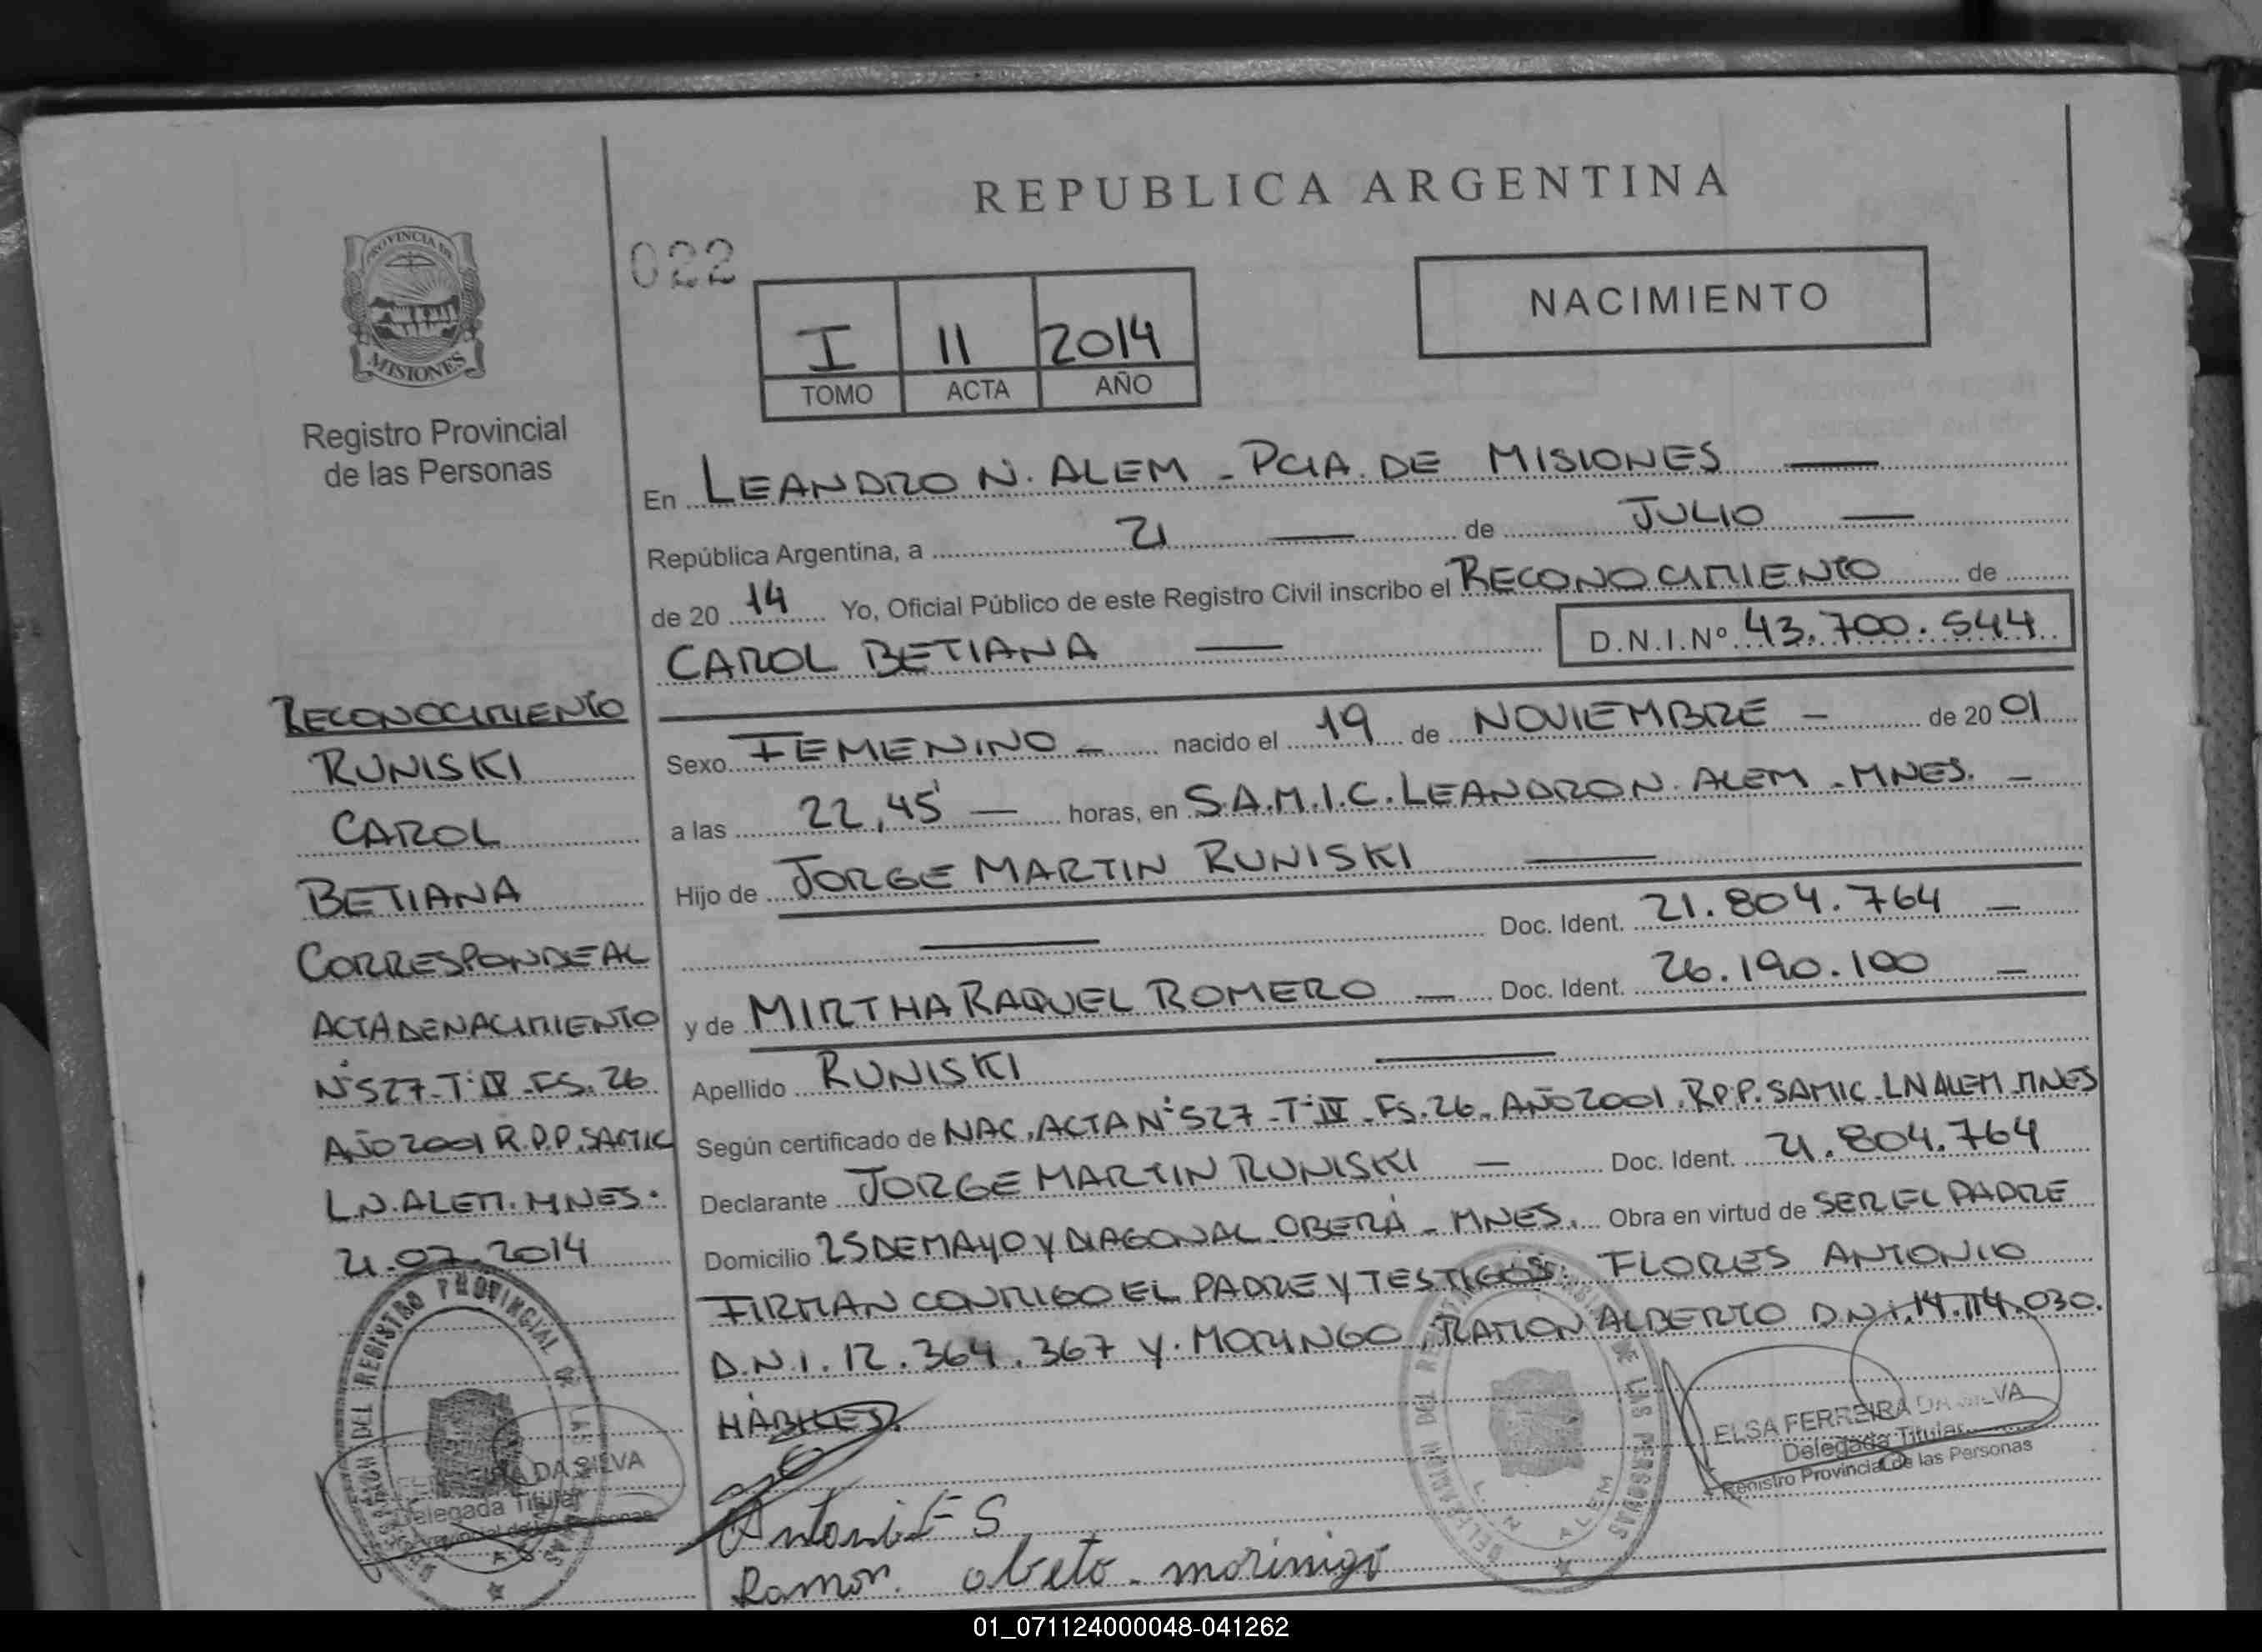 REPUBLICA ARGENTINA
022
NACIMIENTO
PROVINCIA DE
MISIONES
I 11 2014
TOMO ACTA AÑO
Registro Provincial
de las Personas
En LEANDRO N. ALEM - PCIA. DE MISIONES
República Argentina, a 21 de JULIO
de 20 14 Yo, Oficial Público de este Registro Civil inscribo el RECONOCIMIENTO de
CAROL BETIANA D.N.I.Nº 43.700.544
Sexo FEMENINO - nacido el 19 de NOVIEMBRE - de 20 01
a las 22,45' horas, en S.A.M.I.C. LEANDRO N. ALEM - MNES. -
Hijo de JORGE MARTIN RUNISKI
Doc. Ident. 21.804.764 -
y de MIRTHA RAQUEL ROMERO - Doc. Ident. 26.190.100 -
Apellido RUNISKI
Según certificado de NAC. ACTA Nº 527 - Tº IV - FS. 26 - AÑO 2001. R.P.P. SAMIC - L N ALEM MNES
Declarante JORGE MARTIN RUNISKI - Doc. Ident. 21.804.764
Domicilio 25 DE MAYO Y DIAGONAL OBERÁ - MNES. Obra en virtud de SER EL PADRE
FIRMAN CONMIGO EL PADRE Y TESTIGOS: FLORES ANTONIO
D.N.I. 12.364.367 Y. MORINGO, RAMON ALBERTO D.N.I. 14.114.030.
HÁBILES.
RECONOCIMIENTO
RUNISKI
CAROL
BETIANA
CORRESPONDE AL
ACTA DE NACIMIENTO
Nº 527 - Tº IV - FS. 26
AÑO 2001 R.P.P. SAMIC
L.N. ALEM. MNES.
21.07.2014
REGISTRO PROVINCIAL DE LAS
DA SILVA
Delegada Titular
DE LAS PERSONAS
L. N. ALEM
ELSA FERREIRA DA SILVA
Delegada Titular
Registro Provincial de las Personas
Antonio F S
Ramon obeto - morinigo
01_071124000048-041262